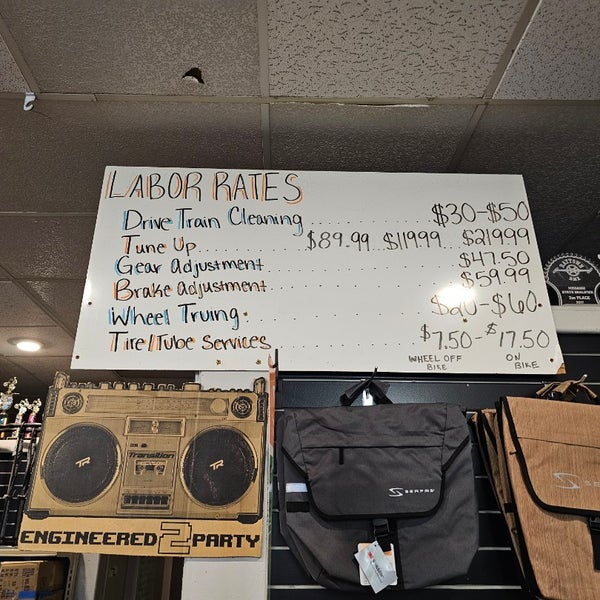 LABOR RATES
Drive Train Cleaning $30-$50
Tune Up $89.99 $119.99 $219.99
Gear adjustment $47.50
Brake adjustment $59.99
Wheel Truing $20-$60
Tire/Tube services $7.50-$17.50
WHEEL OFF BIKE ON BIKE
Transition
TR TR
ENGINEERED 2 PARTY
SERFAS
SERFAS